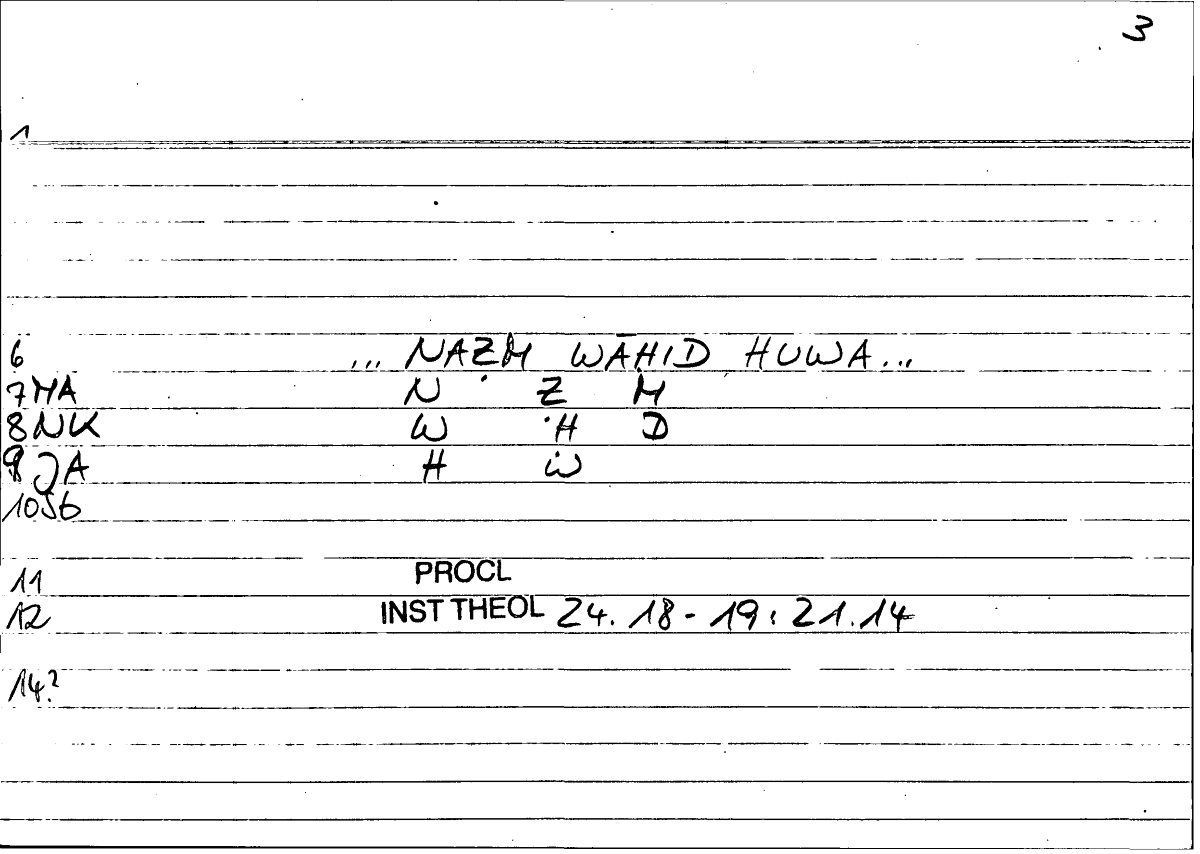 3
1
6 ... NAẒM WĀḤID HUWA...
7 MA N Ẓ M
8 NK W Ḥ D
9 JA H W
10 Sb
11 PROCL
12 INST THEOL 24. 18 - 19 : 21.14
14?